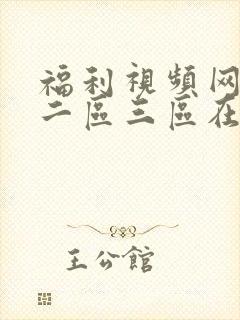 福利視頻网
二區三區在
王公館